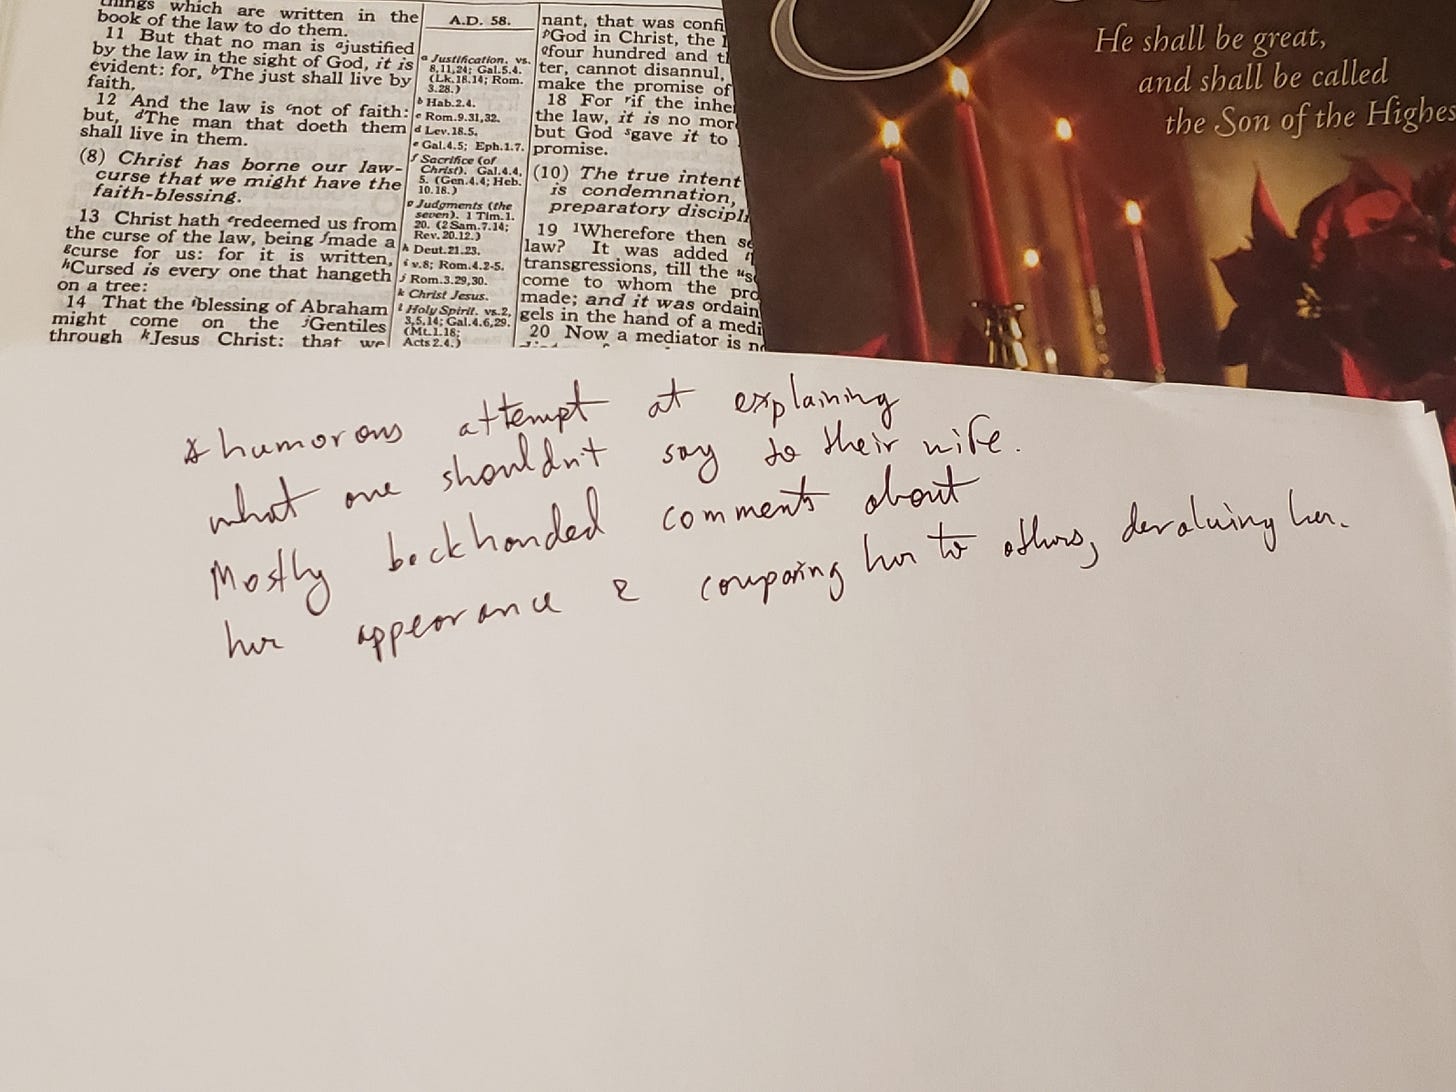 things which are written in the
book of the law to do them.
11 But that no man is ᵃjustified
by the law in the sight of God, it is
evident: for, ᵇThe just shall live by
faith.
12 And the law is ᶜnot of faith:
but, ᵈThe man that doeth them
shall live in them.
(8) Christ has borne our law-
curse that we might have the
faith-blessing.
13 Christ hath ᵉredeemed us from
the curse of the law, being ᶠmade a
ᵍcurse for us: for it is written,
ʰCursed is every one that hangeth
on a tree:
14 That the ⁱblessing of Abraham
might come on the ʲGentiles
through ᵏJesus Christ: that we
A.D. 58.
a Justification. vs.
8,11,24; Gal.5.4.
(Lk.18.14; Rom.
3.28.)
b Hab.2.4.
c Rom.9.31,32.
d Lev.18.5.
e Gal.4.5; Eph.1.7.
f Sacrifice (of
Christ). Gal.4.4,
5. (Gen.4.4; Heb.
10.18.)
g Judgments (the
seven). 1 Tim.1.
20. (2 Sam.7.14;
Rev.20.12.)
h Deut.21.23.
i v.8; Rom.4.2-5.
j Rom.3.29,30.
k Christ Jesus.
l Holy Spirit. vs.2,
3,5,14; Gal.4.6,29.
(Mt.1.18;
Acts 2.4.)
nant, that was confi
ᵖGod in Christ, the
four hundred and
ter, cannot disannul,
make the promise of
18 For ʳif the inhe
the law, it is no mor
but God ˢgave it to
promise.
(10) The true intent
is condemnation,
preparatory discipl
19 ¹Wherefore then se
law? It was added
transgressions, till the
come to whom the pro
made; and it was ordain
gels in the hand of a medi
20 Now a mediator is
He shall be great,
and shall be called
the Son of the Highes
* humorous attempt at explaining
what one shouldn't say to their wife.
Mostly backhanded comments about
her appearance & comparing her to others, devaluing her.